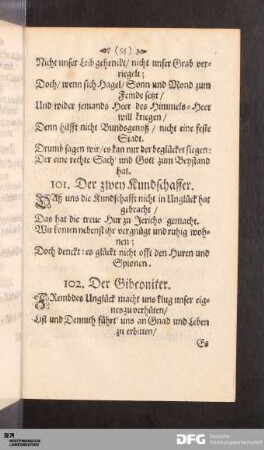 (55)
Nicht unser Leib gehenckt/ nicht unser Grab ver-
riegelt;
Doch/ wenn sich Hagel/ Sonn und Mond zum
Feinde setzt/
Und wider jemands Heer des Himmels-Heer
will kriegen/
Denn hilfft nicht Bundsgenoß/ nicht eine feste
Stadt.
Drumb sagen wir/ es kan nur der beglücket siegen:
Der eine rechte Sach' und Gott zum Beystand
hat.
101. Der zwey Kundschaffer.
Daß uns die Kundschafft nicht in Unglück hat
gebracht/
Das hat die treue Hur zu Jericho gemacht.
Wir konten nebenst ihr vergnügt und ruhig woh-
nen;
Doch denckt: es glückt nicht offt den Huren und
Spionen.
102. Der Gibeoniter.
Frembdes Unglück macht uns klug unser eig-
nes zu verhüten/
List und Demuth führt' uns an Gnad und Leben
zu erbitten/
Es
DFG